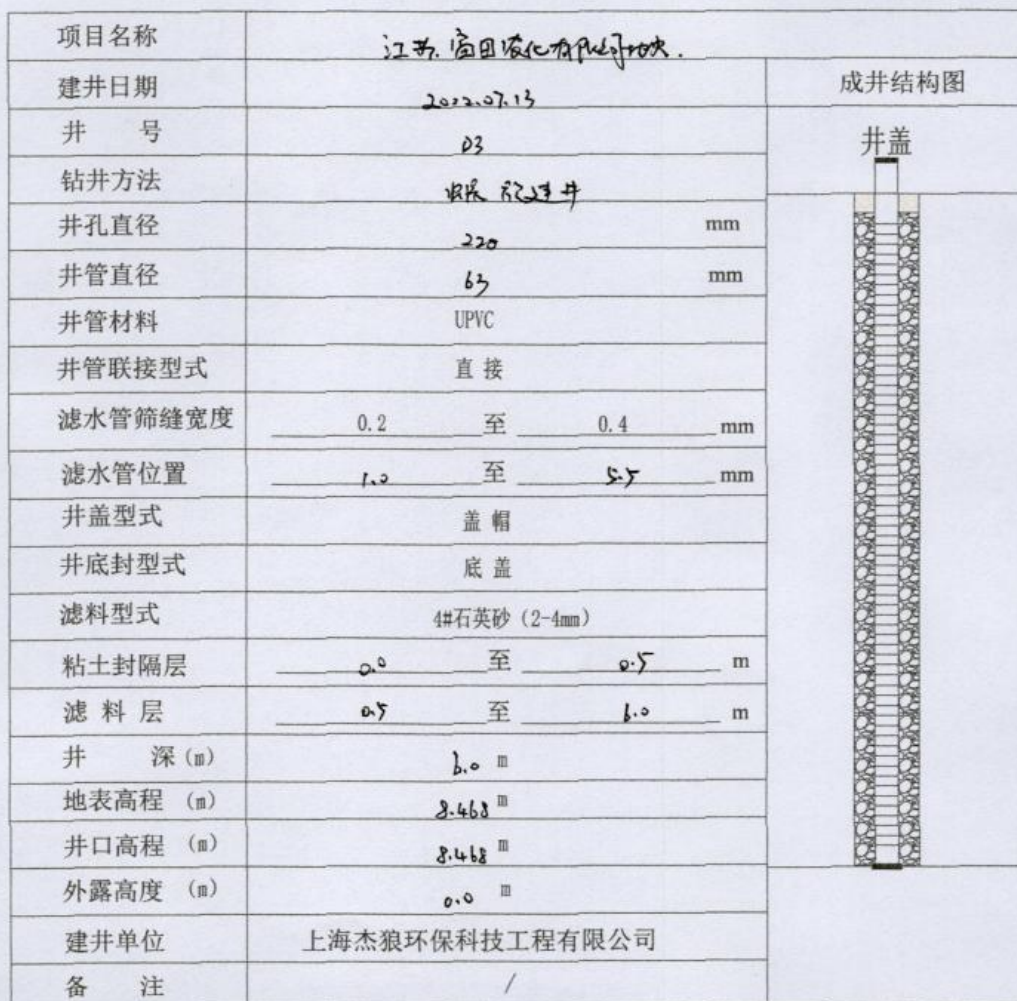 项目名称 江苏富田液化有限公司地块.
建井日期 2022.07.13
成井结构图
井 号 D3
井盖
钻井方法 建井
井孔直径 220 mm
井管直径 63 mm
井管材料 UPVC
井管联接型式 直接
滤水管筛缝宽度 0.2 至 0.4 mm
滤水管位置 1.0 至 5.5 mm
井盖型式 盖帽
井底封型式 底盖
滤料型式 4#石英砂（2-4mm）
粘土封隔层 0.0 至 0.5 m
滤料层 0.5 至 6.0 m
井 深(m) 6.0 m
地表高程 (m) 8.468 m
井口高程 (m) 8.468 m
外露高度 (m) 0.0 m
建井单位 上海杰狼环保科技工程有限公司
备 注 /